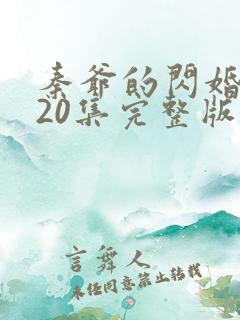 秦爺的閃婚
20集完整版
言舞人
未经同意禁止转载